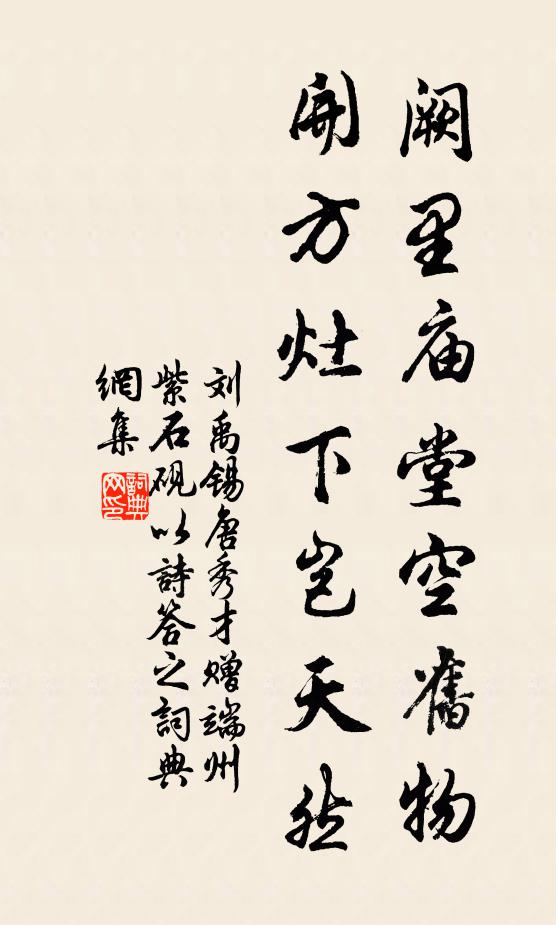 阙里庙堂空舊物
開方灶下岂天然
刘禹锡唐秀才赠端州
紫石砚以詩答之詞典
網集
詞典网印